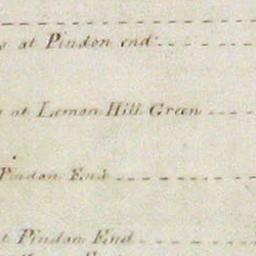 at Pindon end
at Leman Hill Green
Pindan End
at Pindan End